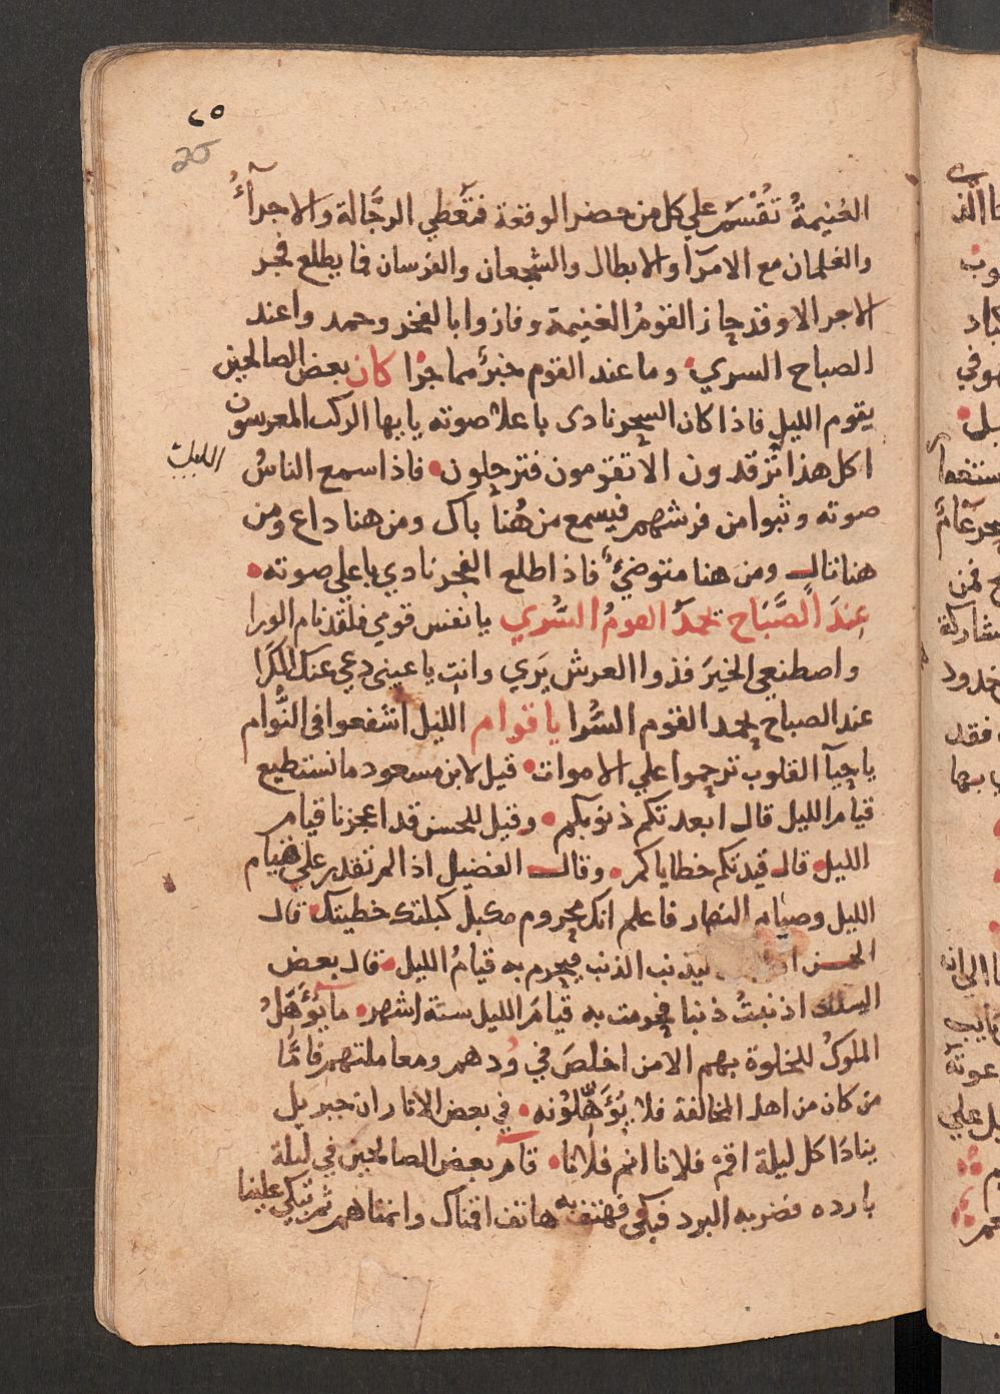 ٢٥
25
الغنيمةُ تُقْسَم علي كل من حضر الوقعة فتُعطي الرجَّالة والاجرآءُ
والغلمان مع الامرآ والابطال والشجعان والفرسان فما يطلع فجر
الاجر الا وقد حاز القومُ الغنيمة وفازوا بالفخر وحمدوا عند
الصباح السري وما عند القوم خبرٌ مما جرٰا كان بعض الصالحين
يقوم الليل فاذا كان السحر نادى باعلا صوته يايها الركب المعرسون
اكل هذا ترقدون الا تقومون فترحلون فاذا سمع الناسُ
الليل
صوته وثبوا من فرشهم فيسمع من هُنا باك ومن هنا داع ومن
هنا تال ومن هنا متوضئٌ فاذا طلع الفجر نادي باعلي صوته
عِندَ الصَّبَاح تحمدُ القومُ السُّري يا نفس قومي فلقد نام الورا
واصطنعي الخيرَ فذوا العرش يَري وانتِ يا عينى دعي عنك الكرَا
عند الصباح يحمد القوم السُّرا يا قوام الليل اشفعوا فى النُّوام
يا حيآ القلوب ترحموا علي الاموات قيل لابن مسعود ما نستطيع
قيام الليل قال ابعدتكم ذنوبكم وقيل للحسن قد اعجزنا قيام
الليل قال قيدتكم خطاياكم وقال الفضيل اذا لم تقدر علي قيام
الليل وصيام النهار فاعلم انك محروم مكبل كبلتك خطيتك قال
الحسن ليذنب الذنب فيحرم به قيامُ الليل قال بعض
السلف اذنبتُ ذنبا فحرمت به قيامَ الليل ستة اشهر ما يُؤَهَّلُ
الملوكُ للخلوة بهم الا من اخلصَ في وُدهم ومعاملتهم فامَّا
من كان من اهل المخالفة فلا يُؤَهِّلُونه في بعض الاثار ان جبريل
ينادَا كل ليلة اقمْ فلانا انم فلانا قام بعض الصالحين في ليلة
بارده فضربه البرد فبكى فهتف به هاتف اقمناك وانمناهم ثم تبكي علينا